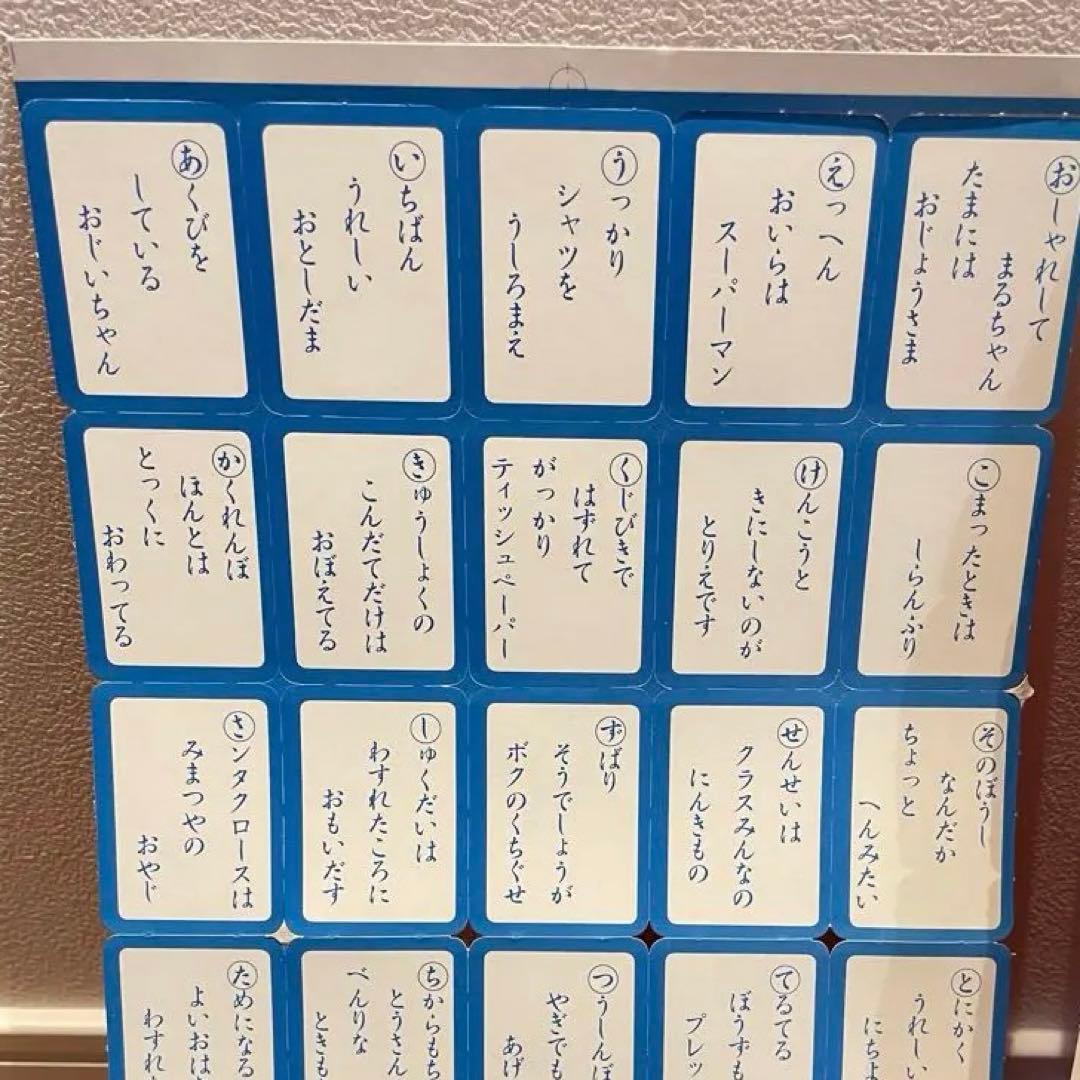 あくびを
している
おじいちゃん
いちばん
うれしい
おとしだま
うっかり
シャツを
うしろまえ
えっへん
おいらは
スーパーマン
おしゃれして
まるちゃん
たまには
おじょうさま
かくれんぼ
ほんとは
とっくに
おわってる
きゅうしょくの
こんだてだけは
おぼえてる
くじびきで
はずれて
がっかり
ティッシュペーパー
けんこうと
きにしないのが
とりえです
こまったときは
しらんふり
さンタクロースは
みまつやの
おやじ
しゅくだいは
わすれたころに
おもいだす
ずばり
そうでしょうが
ボクのくちぐせ
せんせいは
クラスみんなの
にんきもの
そのぼうし
なんだか
ちょっと
へんみたい
ためになる
よいおは
わすれ
ちからもち
とうさん
べんりな
ときも
つうしんぼ
やぎでも
あげ
てるてる
ぼうずも
プレッ
とにかく
うれしい
にちよ